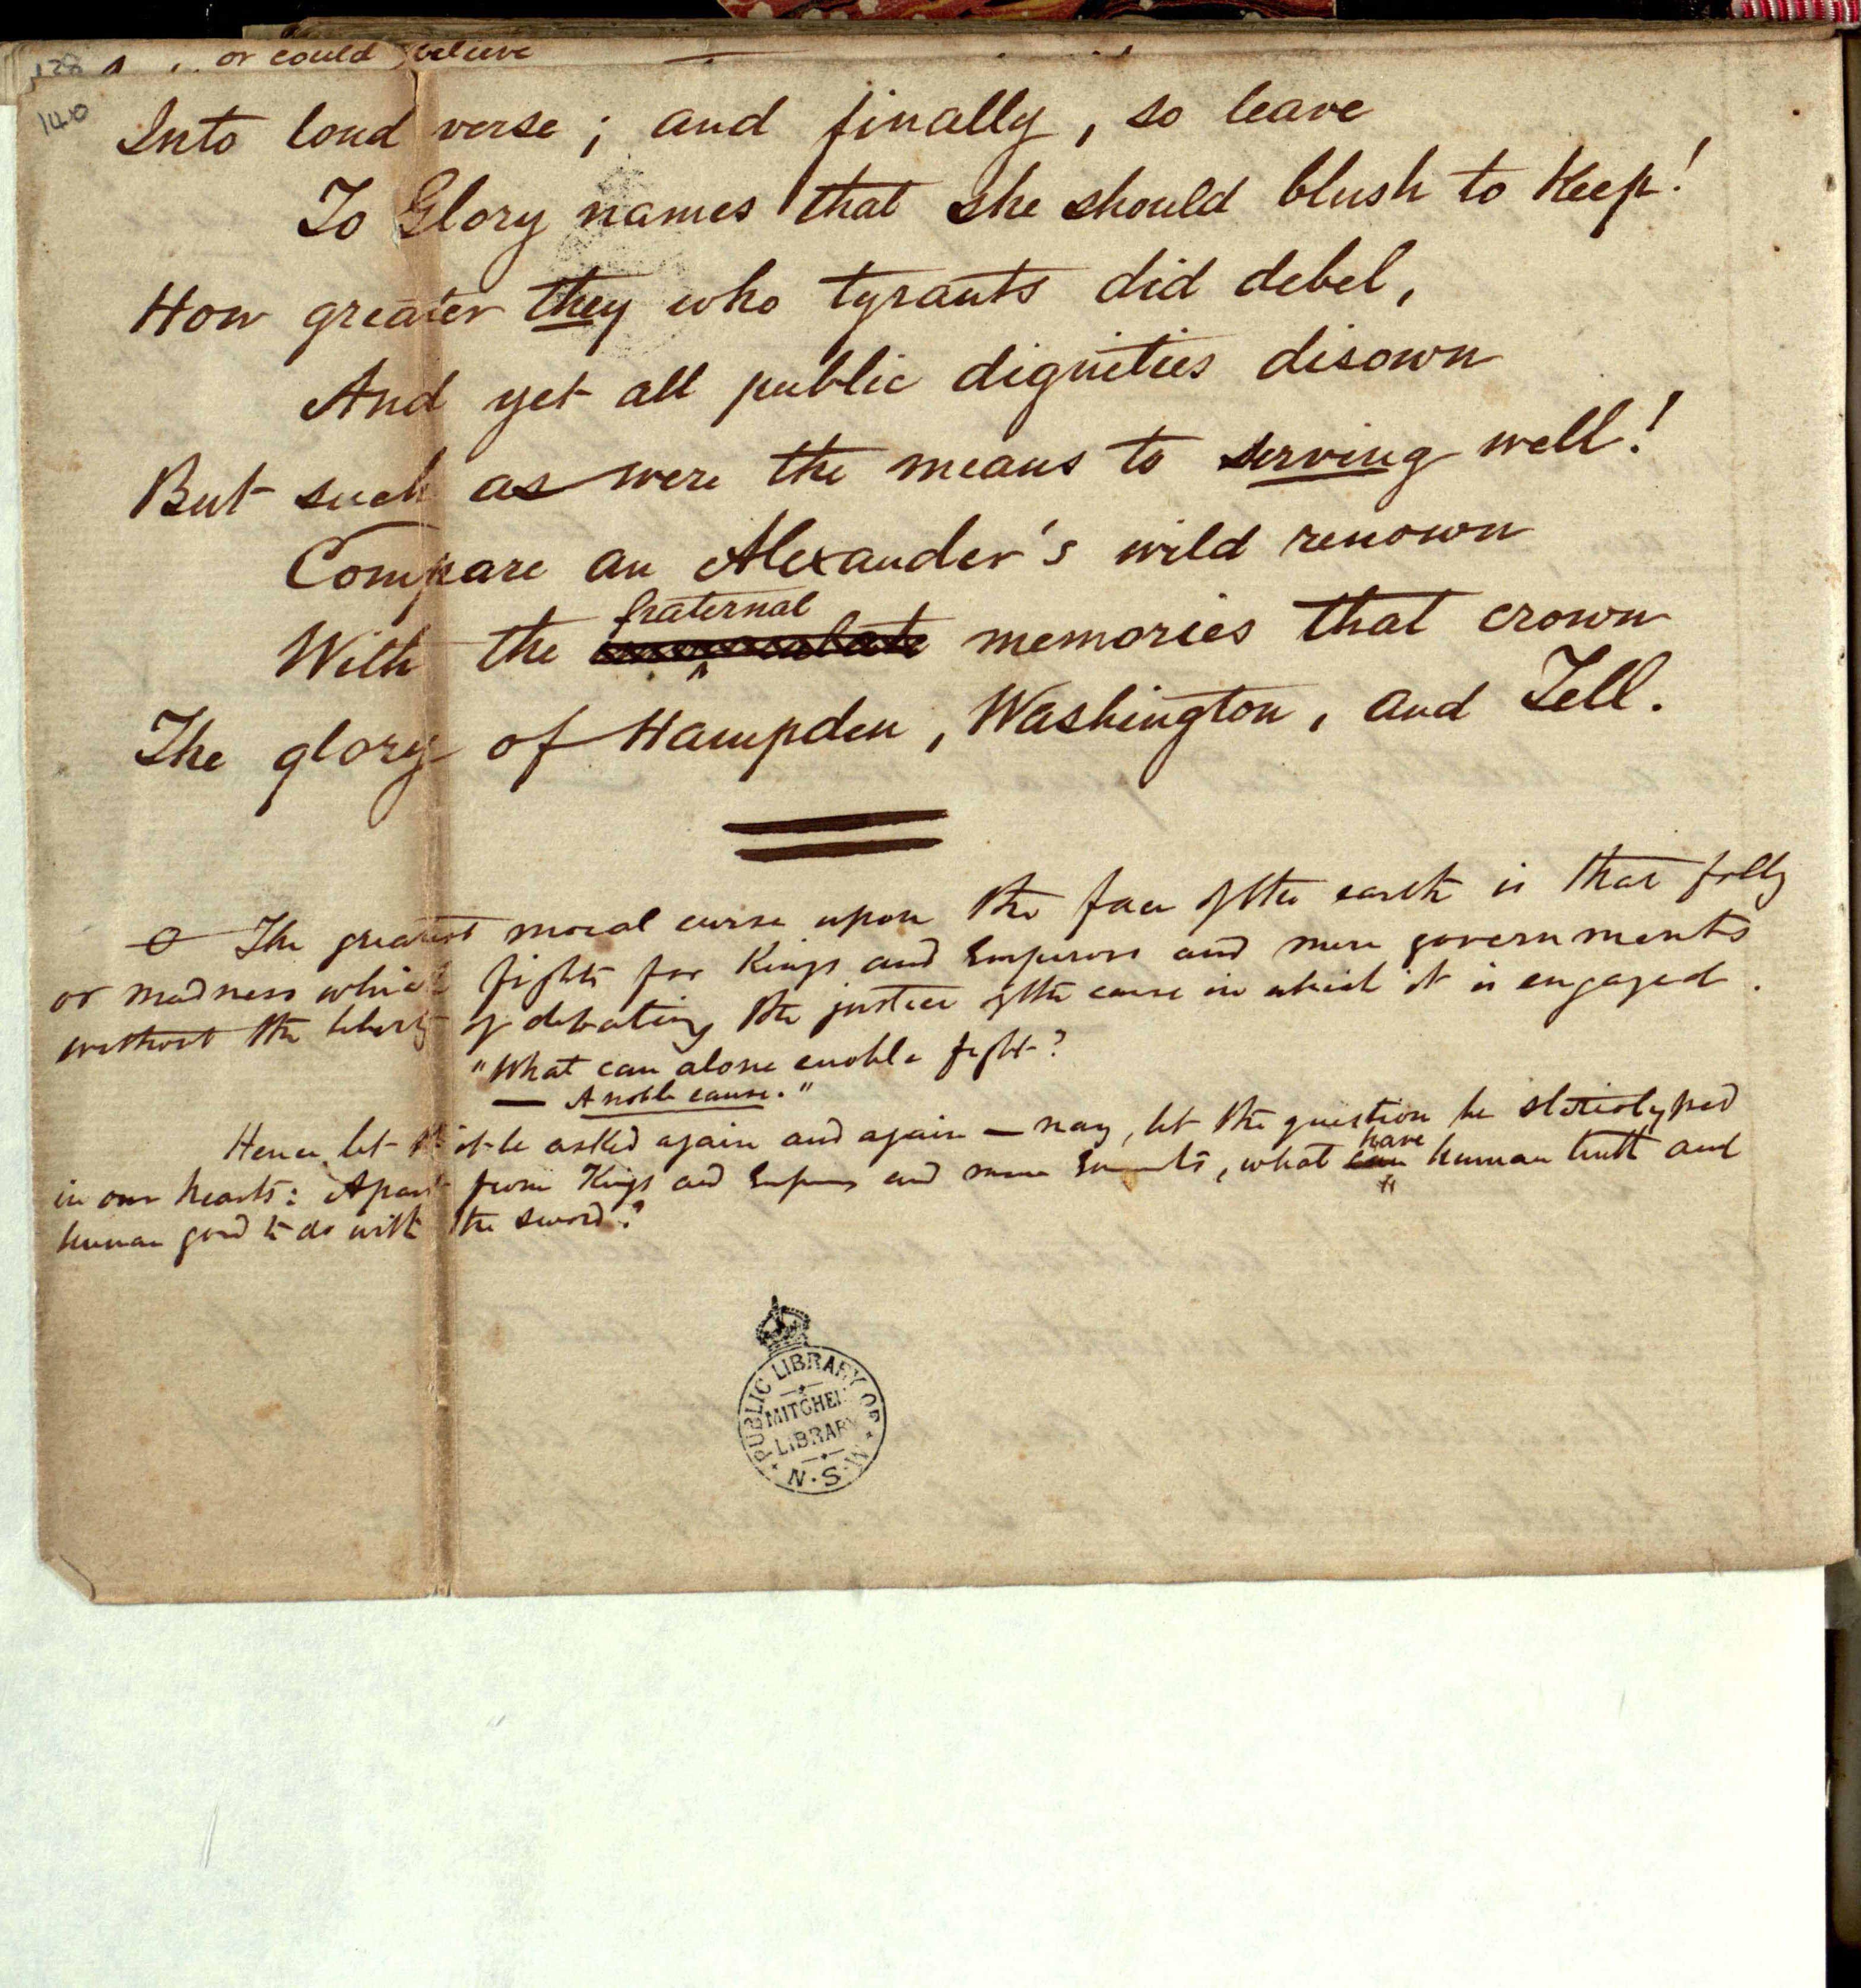 128
or could believe
140
Into loud verse; and finally, so leave
To Glory names that she should blush to keep!
How greater they who tyrants did debel,
And yet all public dignities disown
But such as were the means to serving well!
Compare an Alexander's wild renown
fraternal
With the memories that crown
The glory of Hampden, Washington, and Tell.
The greatest moral curse upon the face of the earth is that folly
or madness which fights for Kings and Emperors and mere governments
without the liberty of debating the justice of the cause in which it is engaged.
"What can alone enoble fight?
— A noble cause."
Hence let it be asked again and again — nay, let the question be steriotyped
have
in our hearts: Apart from Kings and Emperors and mere , what can human truth and
human good to do with the sword?
PUBLIC LIBRARY OF N.S.W.
MITCHELL
LIBRARY